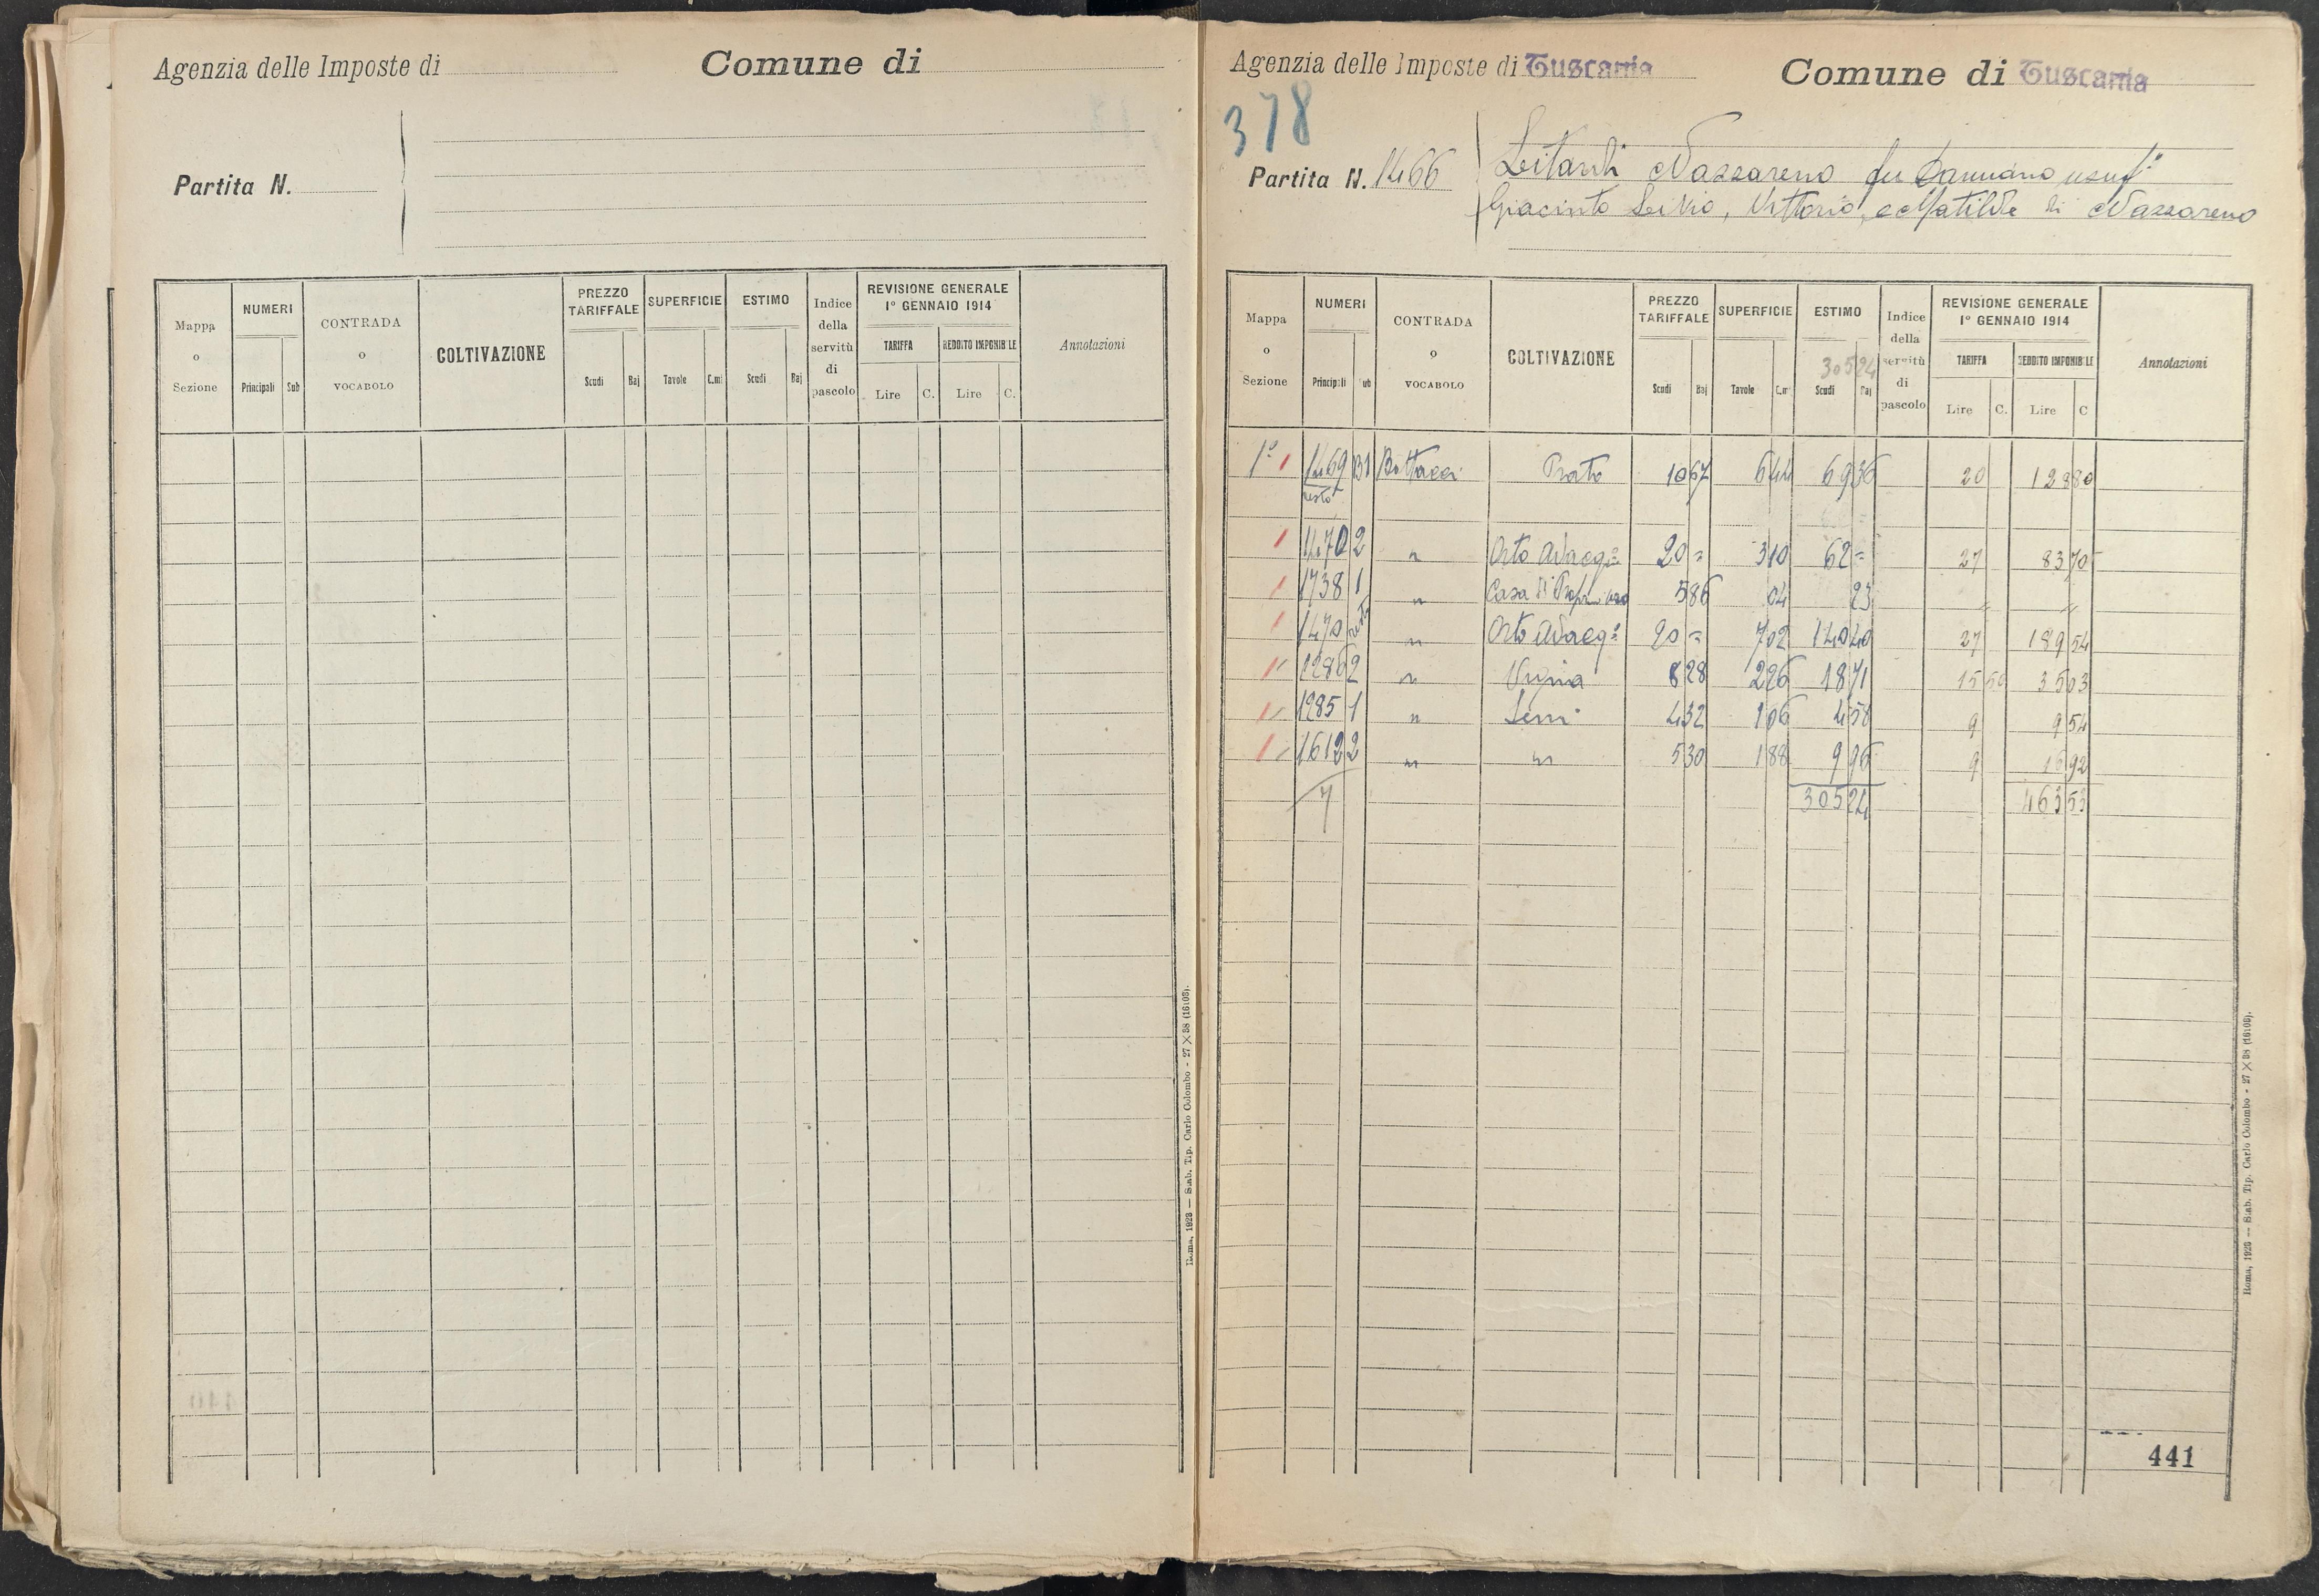 Agenzia delle Imposte di Comune di
Partita N.
Mappa o Sezione NUMERI Principali Sub CONTRADA O VOCABOLO COLTIVAZIONE PREZZO TARIFFALE Scudi Baj SUPERFICIE Tavole C.mi ESTIMO Scudi Baj Indice della servitù di pascolo REVISIONE GENERALE 1º GENNAIO 1914 TARIFFA Lire C. REDDITO IMPONIBILE Lire C. Annotazioni
Roma, 1923 — Stab. Tip. Carlo Colombo - 27 X 38 (16103).
Agenzia delle Imposte di Tuscania Comune di Tuscania
378
Partita N. 1466
Nazzareno fu usuf.
Giacinto Vittorio, e Matilde di Nazzareno
Mappa o Sezione NUMERI Principali Sub CONTRADA O VOCABOLO COLTIVAZIONE PREZZO TARIFFALE Scudi Baj SUPERFICIE Tavole C.mi ESTIMO 305 24 Scudi Baj Indice della servitù di pascolo REVISIONE GENERALE 1º GENNAIO 1914 TARIFFA Lire C. REDDITO IMPONIBILE Lire C Annotazioni
1º 1 1469 resto Bottacci Prato 10 67 6 44 69 36 20 128 80
1 1470 2 " Orto Adacq.º 20 = 3 10 62 = 27 83 70
1 1738 1 " Casa di 5 86 04 23 " "
1 1470 resto " Orto Adacq.º 20 = 7 02 140 40 27 189 54
1 1286 2 " Vigna 8 28 2 26 18 71 15 50 35 03
1 1285 1 " Sem. 4 32 1 06 4 58 9 9 54
1 1612 2 " " 5 30 1 88 9 96 9 16 92
7 305 24 463 53
441
Roma, 1923 — Stab. Tip. Carlo Colombo - 27 X 38 (16103).